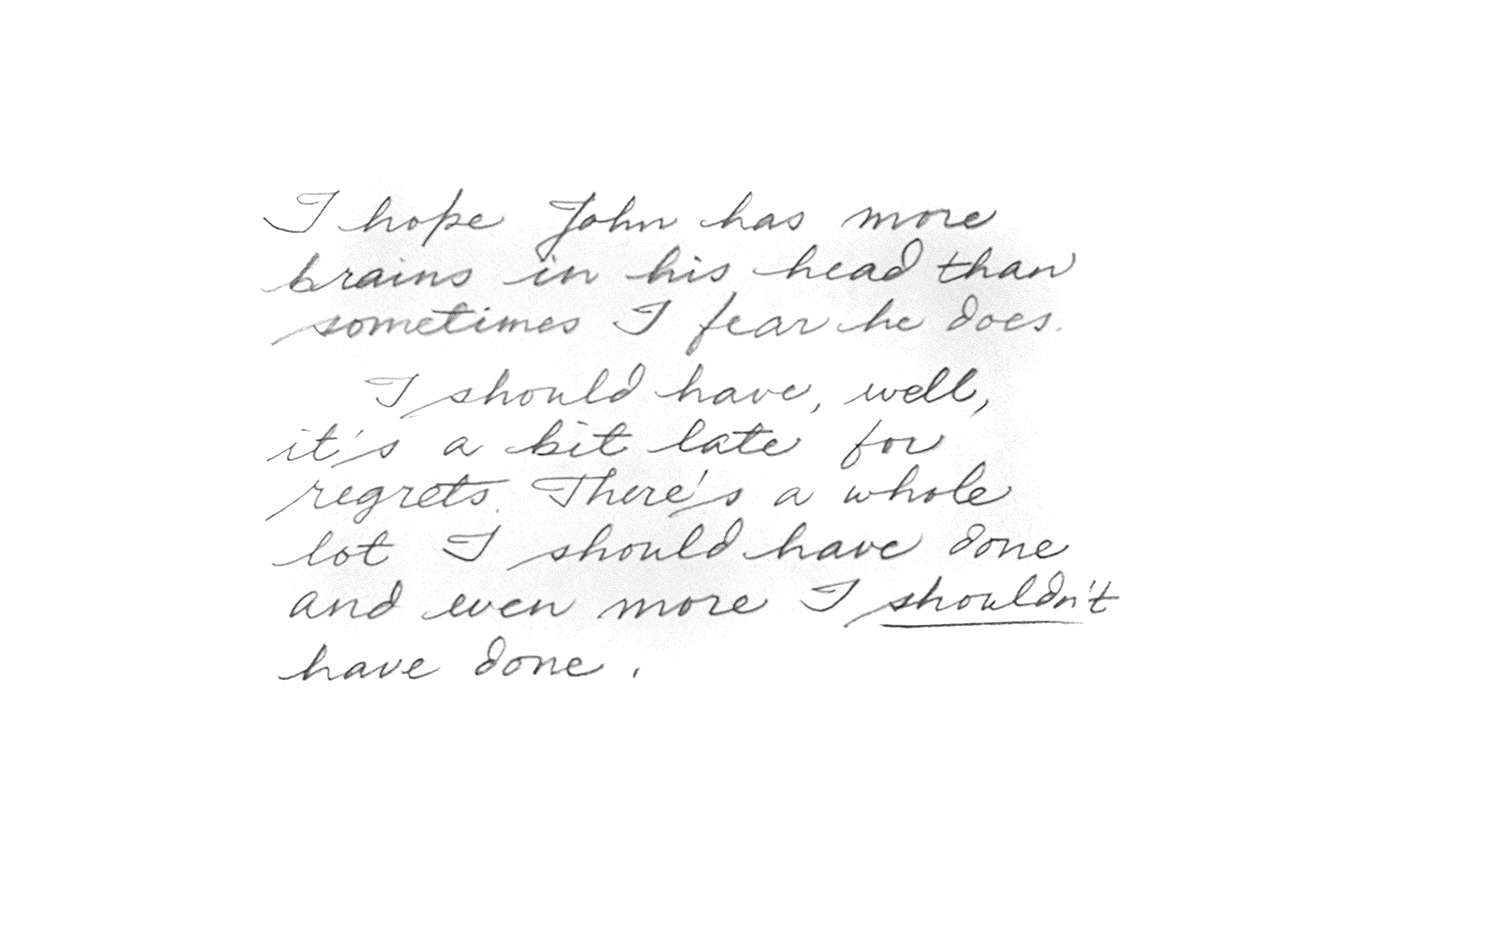 I hope John has more
brains in his head than
sometimes I fear he does.
I should have, well,
it's a bit late for
regrets. There's a whole
lot I should have done
and even more I shouldn't
have done.